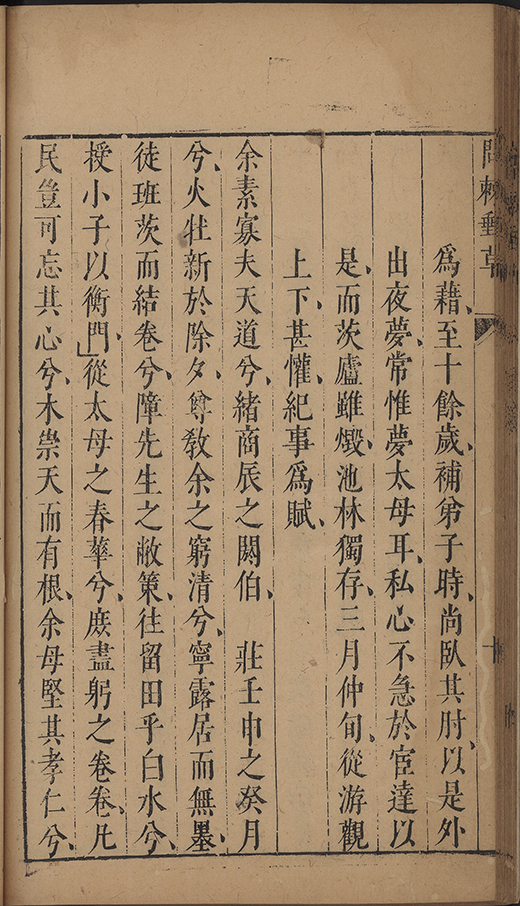 問棘郵草
十
爲藉、至十餘歲、補弟子時、尚臥其肘、以是外
出夜夢、常惟夢太母耳、私心不急於宦達以
是、而茨廬雖燬、池林獨存、三月仲旬、從游觀
上下、甚懽、紀事爲賦、
余素寡夫天道兮、緒商辰之閼伯、莊壬申之癸月
兮、火壯新於除夕、尊敎余之窮清兮、寧露居而無墨、
徒班茨而結卷兮、障先生之敝策、往留田乎白水兮、
授小子以衡門、」從太母之春華兮、庶盡躬之卷卷、凡
民豈可忘其心兮、木祟天而有根、余母堅其孝仁兮、